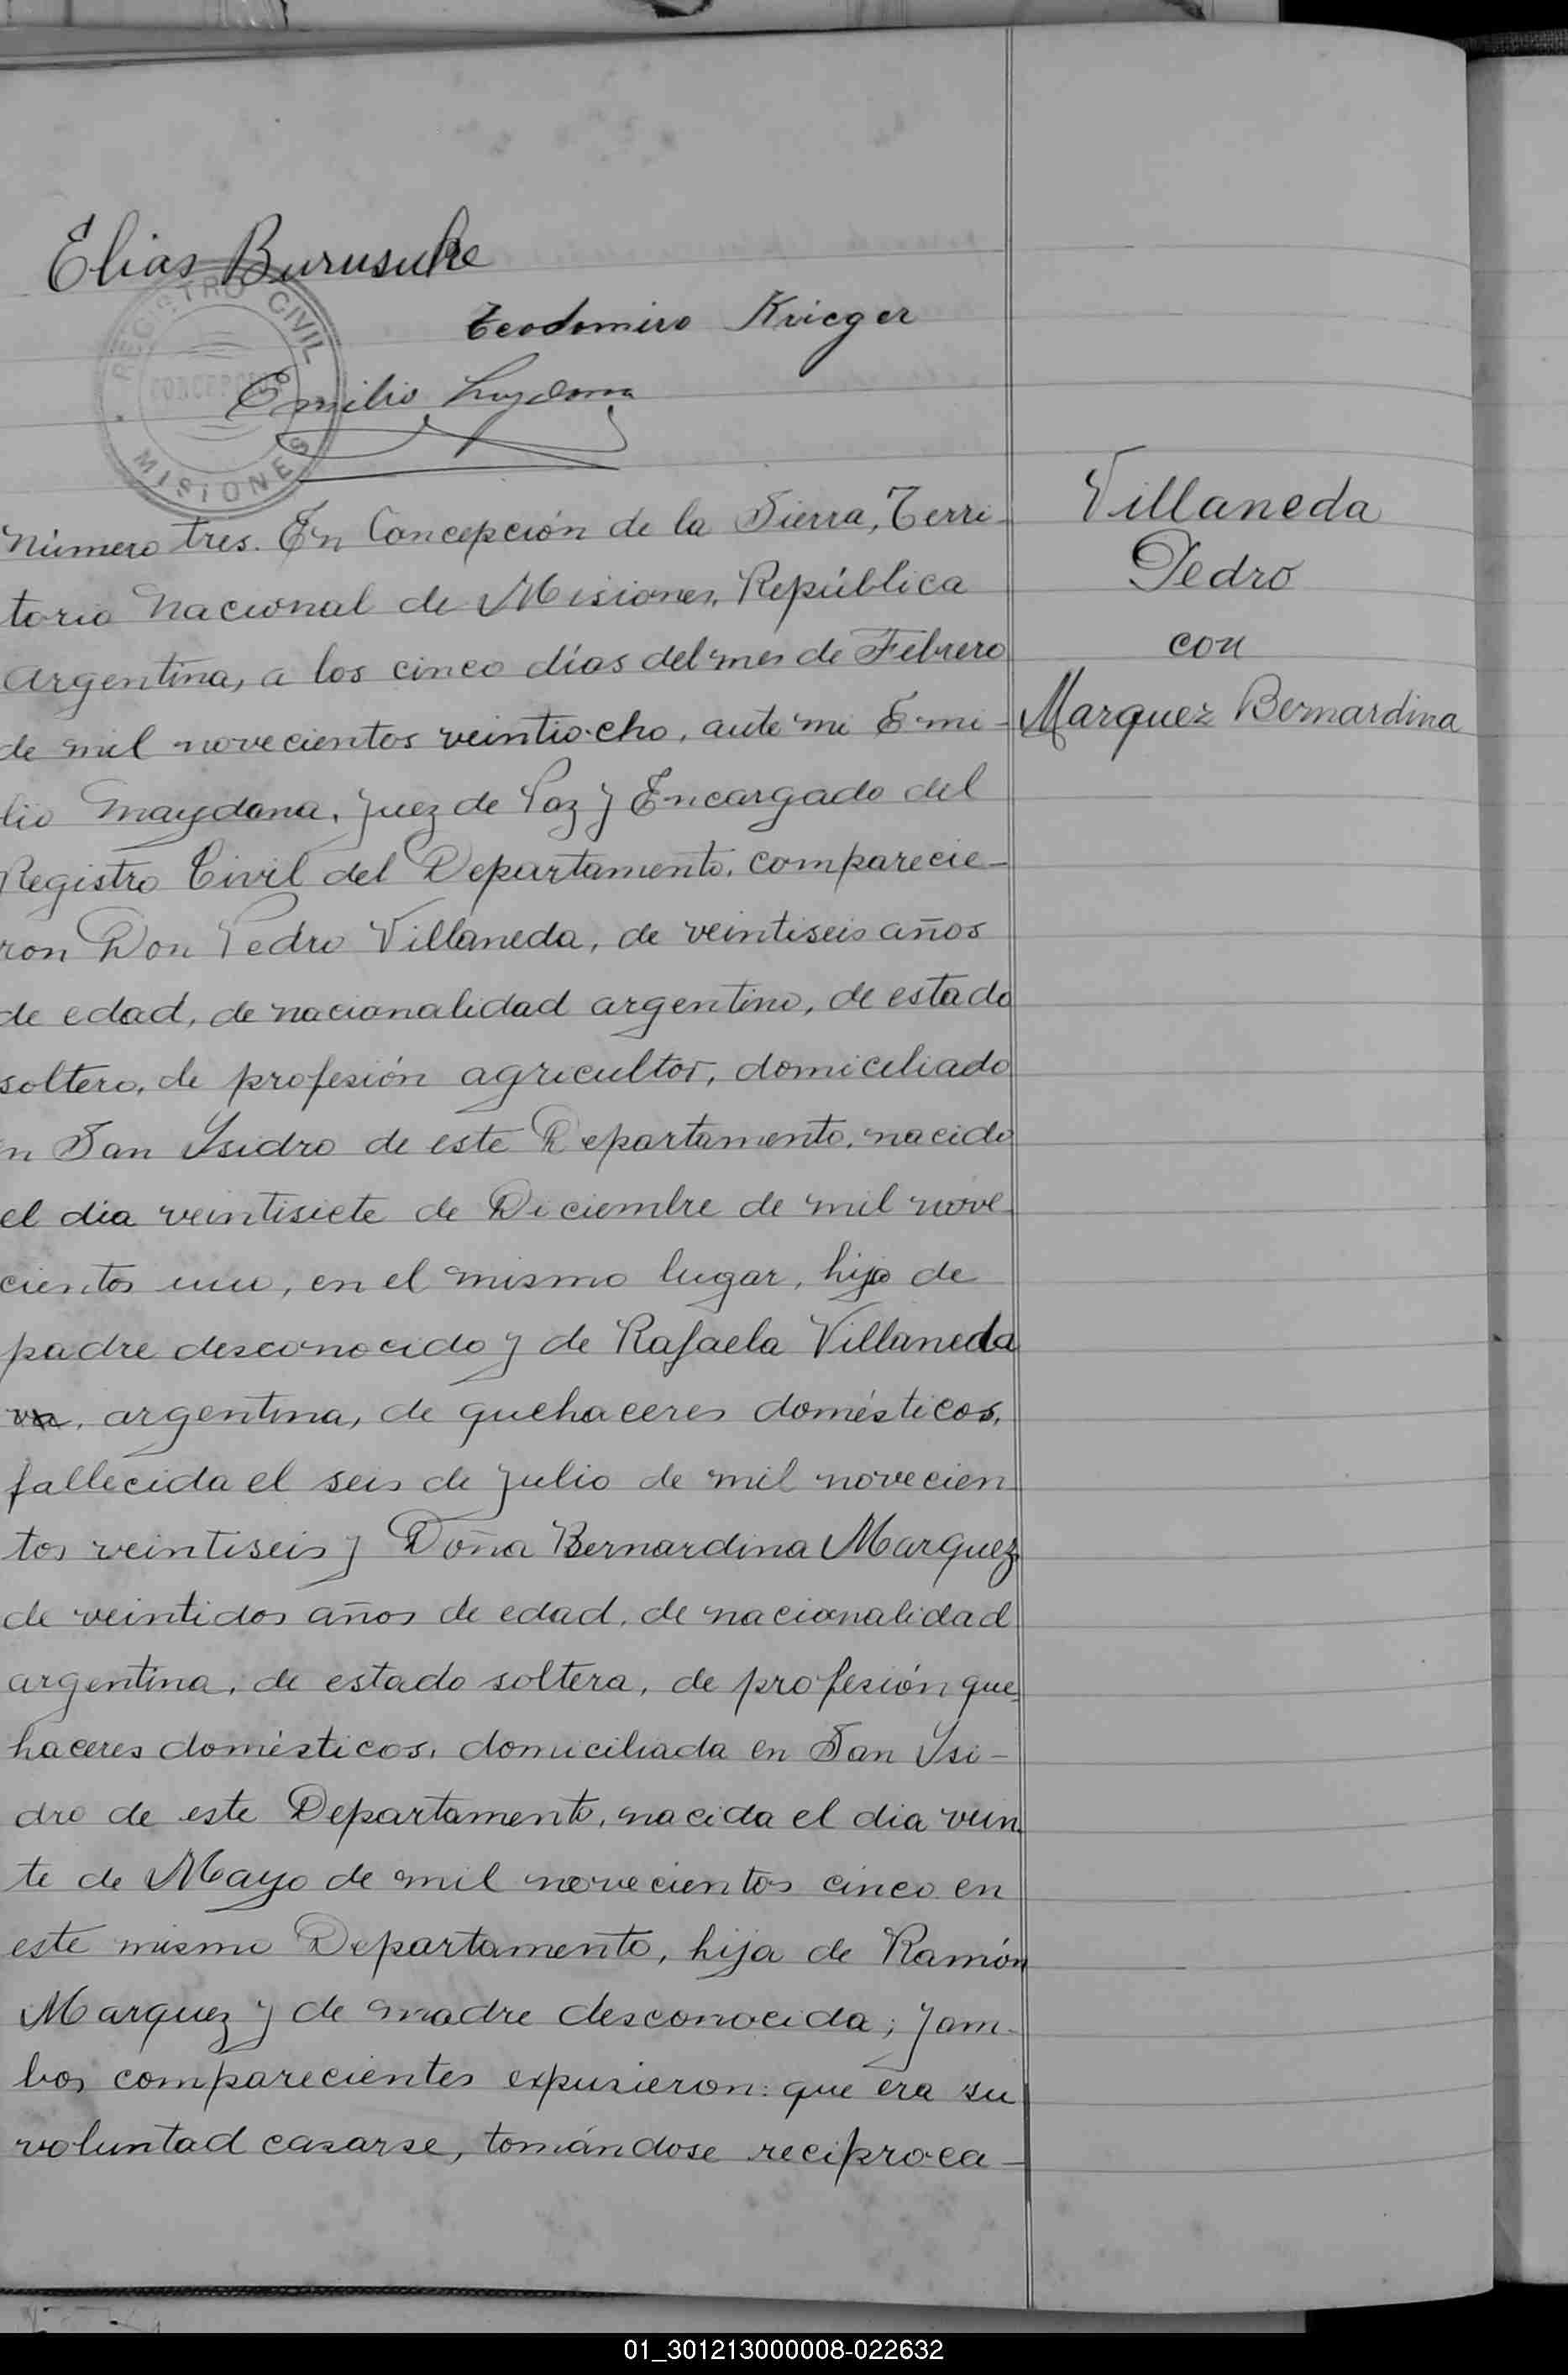 Elias Burusuke
REGISTRO CIVIL
CONCEPCION
MISIONES
Teodomiro Krieger
Emilio
Número tres. En Concepción de la Sierra, Terri-
torio Nacional de Misiones, República
Argentina, a los cinco días del mes de Febrero
de mil novecientos veintiocho, ante mi Emi-
lio Maydana, Juez de Paz y Encargado del
Registro Civil del Departamento, comparecie-
ron Don Pedro Villaneda, de veintiseis años
de edad, de nacionalidad argentino, de estado
soltero, de profesión agricultor, domiciliado
n San Ysidro de este Departamento, nacido
el dia veintisiete de Diciembre de mil nove-
cientos uno, en el mismo lugar, hijo de
padre desconocido y de Rafaela Villaneda
argentina, de quehaceres domésticos,
fallecida el seis de Julio de mil novecien-
tos veintiseis y Doña Bernardina Marquez
de veintidos años de edad, de nacionalidad
argentina, de estado soltera, de profesión que-
haceres domésticos, domiciliada en San Ysi-
dro de este Departamento, nacida el dia vein-
te de Mayo de mil novecientos cinco en
este mismo Departamento, hija de Ramón
Marquez y de madre desconocida; y am-
bos comparecientes expusieron: que era su
voluntad casarse, tomándose reciproca-
Villaneda
Pedro
con
Marquez Bernardina
01_301213000008-022632